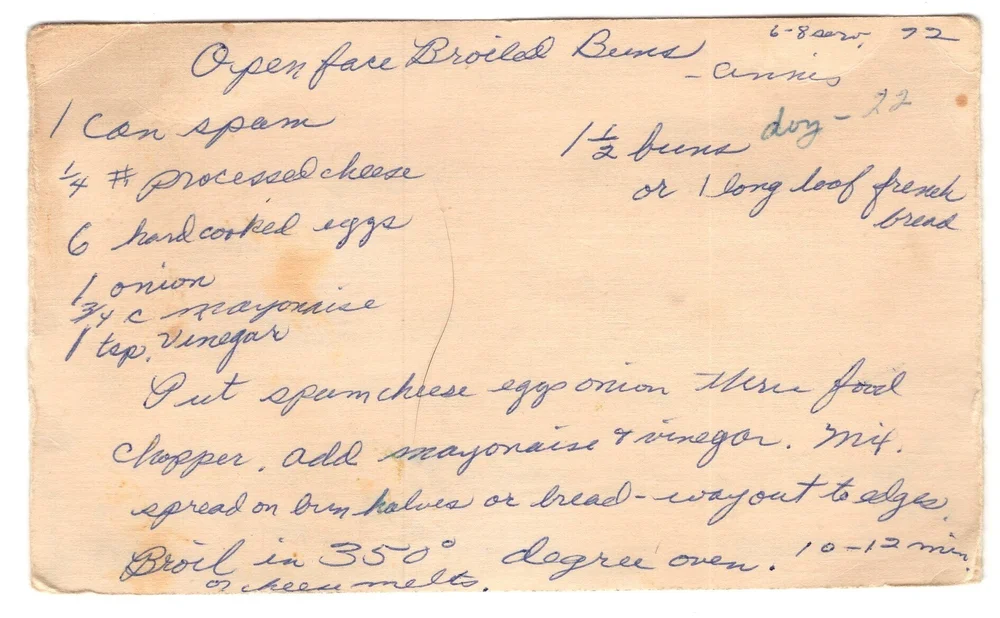 6-8 serv. 72
Open face Broiled Buns
- Annis
1 can spam
doz - 22
1 1/2 buns
1/4 # processed cheese
or 1 long loof french
bread
6 hard cooked eggs
1 onion
3/4 c mayonaise
1 tsp. vinegar
Put spam cheese eggs onion thru food
chopper. add mayonaise & vinegar. Mix.
spread on bun halves or bread - way out to edges.
Broil in 350° degree oven. 10-12 min.
or cheese melts.